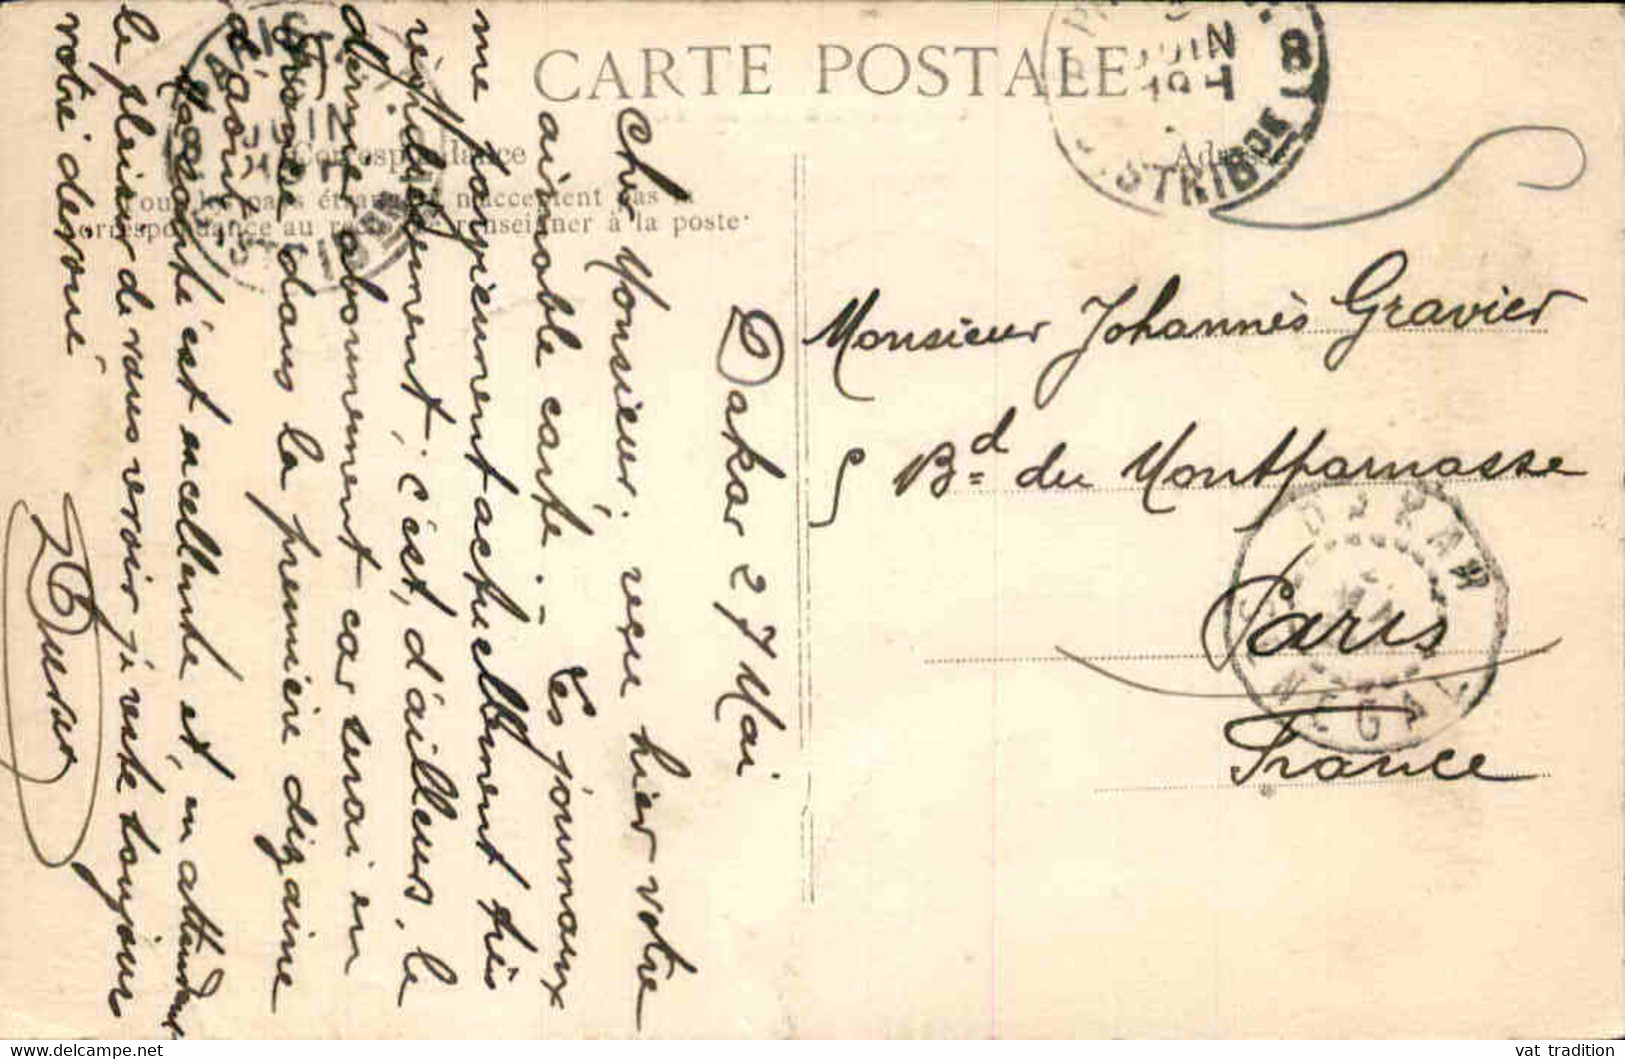 CARTE POSTALE
Correspondance
Tous les pays étrangers n'acceptent pas la
correspondance au recto. Se renseigner à la poste.
Dakar 27 Mai
Cher Monsieur, reçu hier votre
aimable carte. - Les journaux
me parviennent actuellement très
régulièrement, c'est, d'ailleurs, le
dernier abonnement car serai en
France dans la première dizaine
d'août.
Ma santé est excellente et, en attendant
le plaisir de vous revoir je reste toujours
votre dévoué
Monsieur Johannès Gravier
5 Bd du Montparnasse
Paris
France
JUIN
DISTRIBUTION
DAKAR
SENEGAL
vat tradition